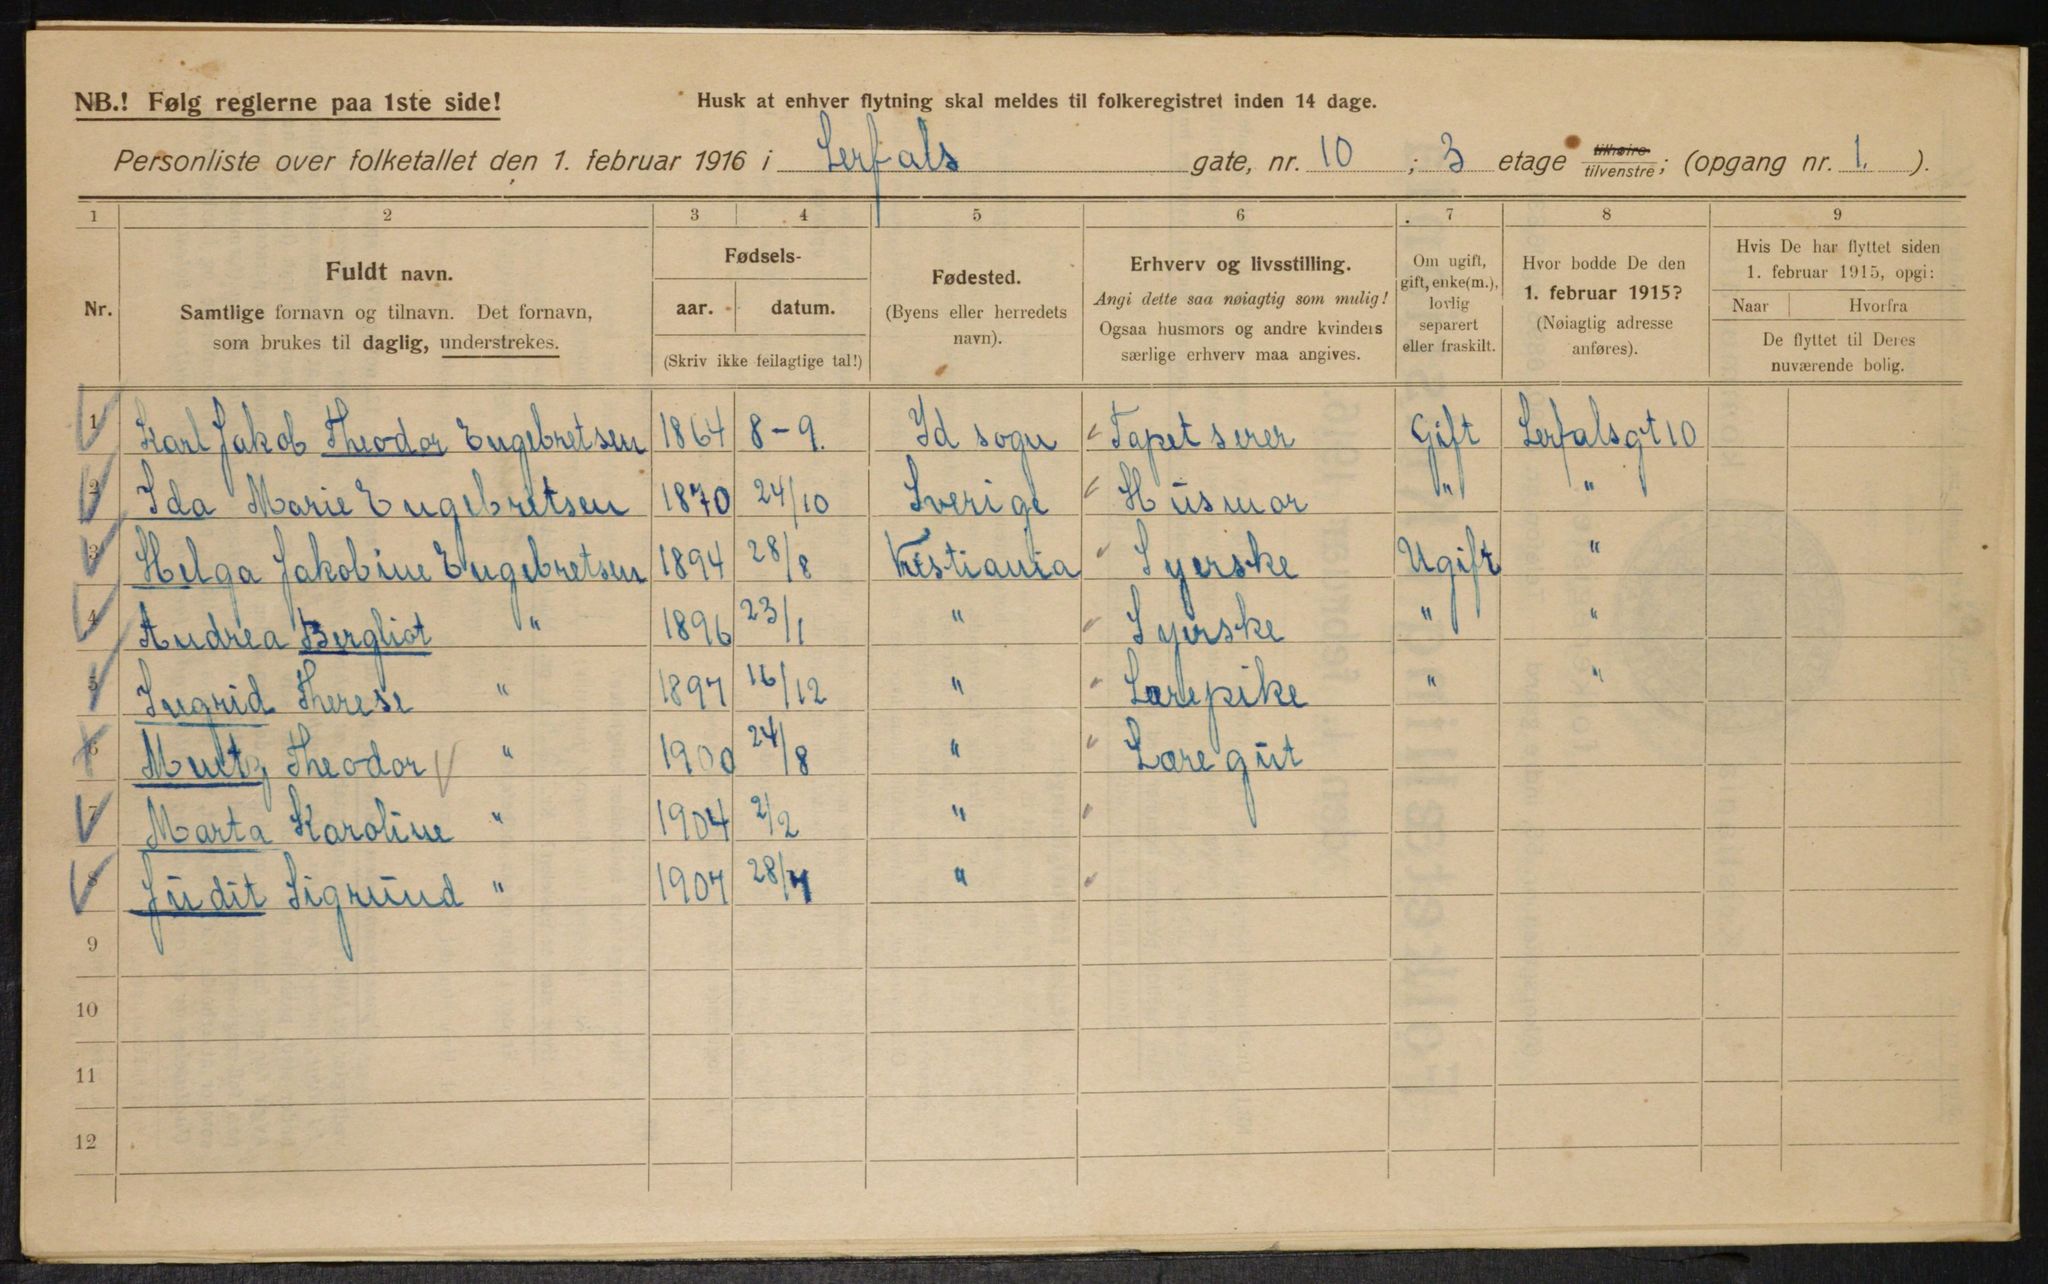 NB.! Følg reglerne paa 1ste side! Husk at enhver flytning skal meldes til folkeregistret inden 14 dage.
Personliste over folketallet den 1. februar 1916 i Lerfals gate, nr. 10 ; 3 etage tilhøire tilvenstre ; (opgang nr. 1. ).
1 2 3 4 5 6 7 8 9
Nr.
Fuldt navn.
Samtlige fornavn og tilnavn. Det fornavn,
som brukes til daglig, understrekes.
Fødsels-
aar. datum.
(Skriv ikke feilagtige tal!)
Fødested.
(Byens eller herredets
navn).
Erhverv og livsstilling.
Angi dette saa nøiagtig som mulig!
Ogsaa husmors og andre kvinders
særlige erhverv maa angives.
Om ugift,
gift, enke(m.),
lovlig
separert
eller fraskilt.
Hvor bodde De den
1. februar 1915?
(Nøiagtig adresse
anføres).
Hvis De har flyttet siden
1. februar 1915, opgi:
Naar Hvorfra
De flyttet til Deres
nuværende bolig.
1 Karl Jakob Theodor Engebretsen 1864 8-9. Id sogn Tapetserer Gift Lerfalsgt 10
2 Ida Marie Engebretsen 1870 24/10 Sverige Husmor " "
3 Helga Jakobine Engebretsen 1894 28/8 Kristiania Syerske Ugift "
4 Andrea Bergliot " 1896 23/1 " Syerske " "
5 Ingrid Therese " 1897 16/12 " Lærepike " "
6 Theodor " 1900 24/8 " Læregut
7 Marta Karoline " 1904 2/2 "
8 Judit Sigrund " 1907 28/7 "
9
10
11
12